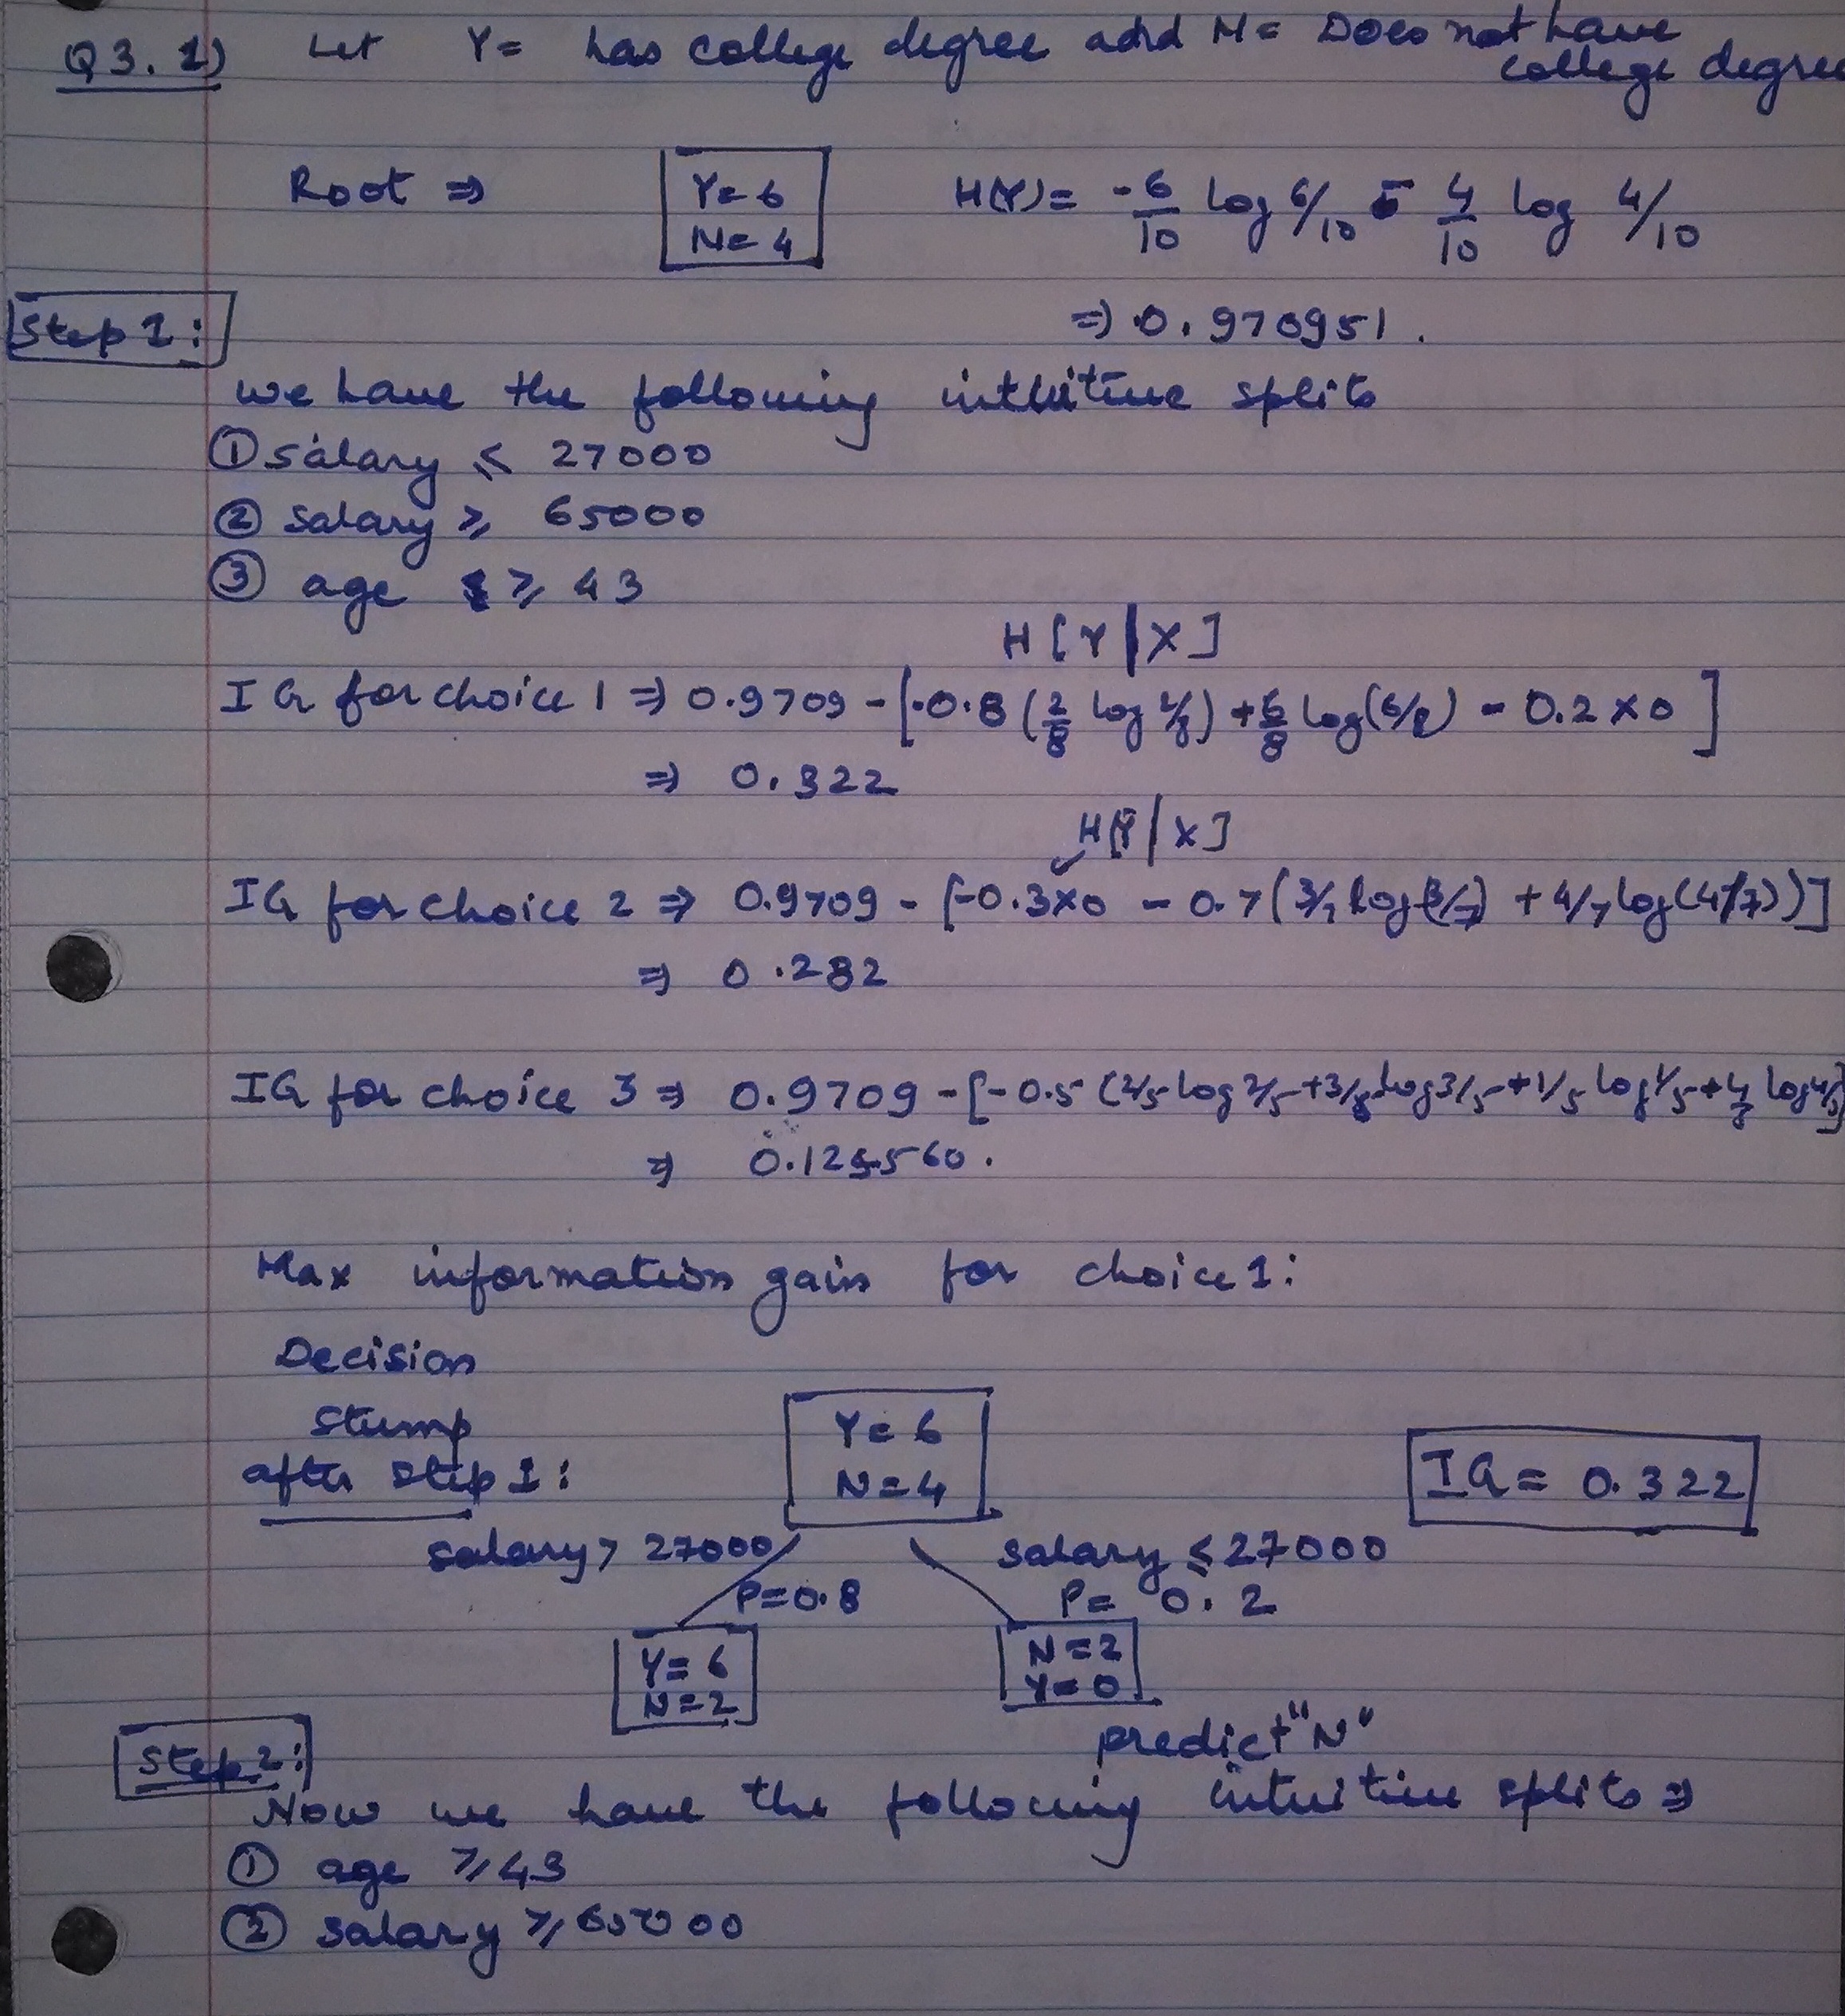 Q3. 1) Let Y= has college degree and N= Does not have
college degree
Root ⇒ Y=6 H(Y)= -6/10 log 6/10 - 4/10 log 4/10
N=4
Step 1: ⇒ 0.970951.
we have the following intuitive splits
① salary ≤ 27000
② salary ≥ 65000
③ age ≥ 43
H[Y|X]
IG for choice 1 ⇒ 0.9709 - [-0.8 (2/8 log 2/8) + 6/8 log(6/8) - 0.2×0]
⇒ 0.322
H[Y|X]
IG for choice 2 ⇒ 0.9709 - [-0.3×0 - 0.7(3/7 log(3/7) + 4/7 log(4/7))]
⇒ 0.282
IG for choice 3 ⇒ 0.9709 - [-0.5 (2/5 log 2/5 + 3/5 log 3/5 + 1/5 log 1/5 + 4/5 log 4/5]
⇒
Max information gain for choice 1:
Decision
Stump
after step 1:
Y=6
N=4
IG = 0.322
salary > 27000 salary ≤ 27000
P=0.8 P= 0.2
Y=6 N=2
N=2 Y=0
predict "N"
Step 2:
Now we have the following intuitive splits ⇒
① age ≥ 43
② salary ≥